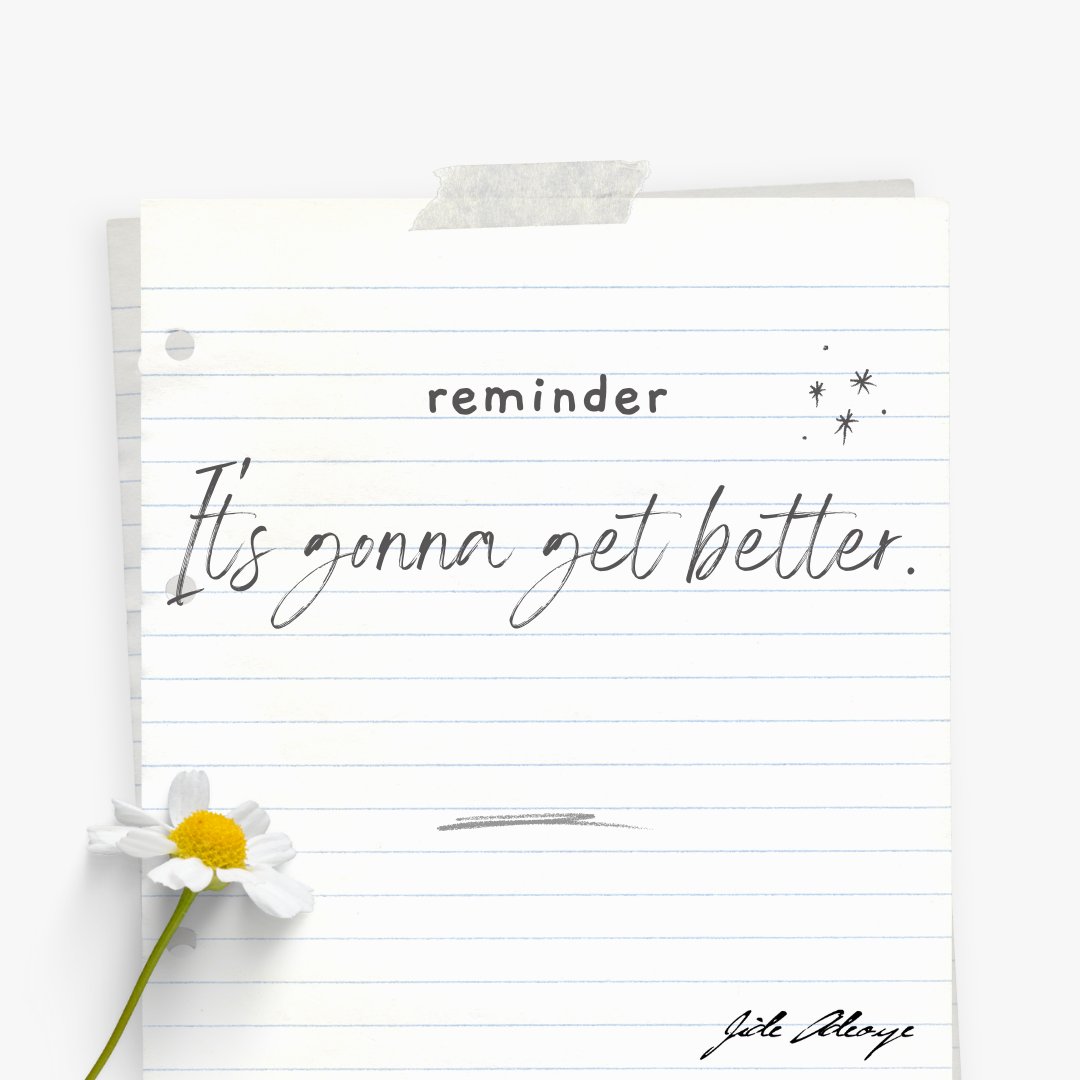 reminder
It's gonna get better.
Jide Adeoye